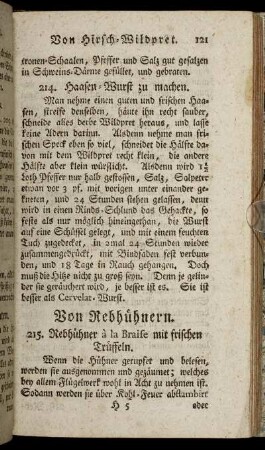 Von Hirsch-Wildpret. 121
tronen-Schaalen, Pfeffer und Salz gut gesalzen
in Schweins-Därme gefüllet, und gebraten.
214. Haasen-Wurst zu machen.
Man nehme einen guten und frischen Haa-
sen, streife denselben, häute ihn recht sauber,
schneide alles derbe Wildpret heraus, und lasse
keine Adern darinn. Alsdenn nehme man fri-
schen Speck eben so viel, schneidet die Hälfte da-
von mit dem Wildpret recht klein, die andere
Hälfte aber klein würflicht. Alsdenn wird 1½
Loth Pfeffer nur halb gestossen, Salz, Salpeter
etwan vor 3 pf. mit vorigen unter einander ge-
kneten, und 24 Stunden stehen gelassen, denn
wird in einen Rinds-Schlund das Gehackte, so
feste als nur möglich hineingethan, die Wurst
auf eine Schüssel gelegt, und mit einem feuchten
Tuch zugedecket, in 2mal 24 Stunden wieder
zusammengedrückt, mit Bindfaden fest verbun-
den, und 18 Tage in Rauch gehangen. Doch
muß die Hitze nicht zu groß seyn. Denn je gelin-
der sie geräuchert wird, je besser ist es. Sie ist
besser als Cervelat-Wurst.
Von Rebhühnern.
215. Rebhühner à la Braise mit frischen
Trüffeln.
Wenn die Hühner gerupfet und belesen,
werden sie ausgenommen und gezäumet; welches
bey allem Flügelwerk wohl in Acht zu nehmen ist.
Sodann werden sie über Kohl-Feuer abflambirt
H 5 oder